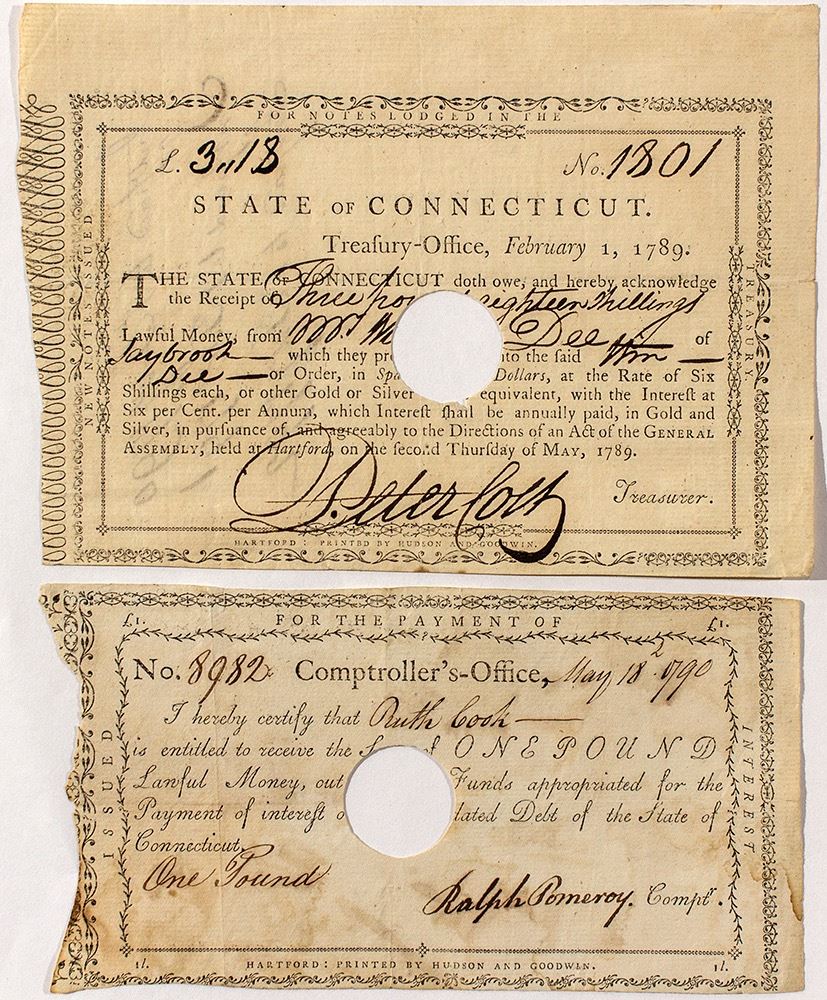 FOR NOTES LODGED IN THE
NEW NOTES ISSUED
TREASURY.
£. 3,,18 No. 1801
STATE OF CONNECTICUT.
Treaſury-Office, February 1, 1789.
THE STATE OF CONNECTICUT doth owe, and hereby acknowledge
the Receipt of Three eighteen Shillings
Lawful Money, from Dee of
Saybrook — which they to the ſaid Wm —
Dee — or Order, in Dollars, at the Rate of Six
Shillings each, or other Gold or Silver equivalent, with the Intereſt at
Six per Cent. per Annum, which Intereſt ſhall be annually paid, in Gold and
Silver, in purſuance of, and agreeably to the Directions of an Act of the GENERAL
ASSEMBLY, held at Hartford, on the ſecond Thurſday of MAY, 1789.
Peter Colt Treaſurer.
HARTFORD: PRINTED BY HUDSON AND GOODWIN.
£1. FOR THE PAYMENT OF £1.
ISSUED
INTEREST
No. 8982 Comptroller's-Office, May 18 1790
I hereby certify that Ruth Cook —
is entitled to receive the of ONE POUND
Lawful Money, out Funds appropriated for the
Payment of intereſt Debt of the State of
Connecticut.
One Pound
Ralph Pomeroy. Comptr.
1l. HARTFORD: PRINTED BY HUDSON AND GOODWIN. 1l.